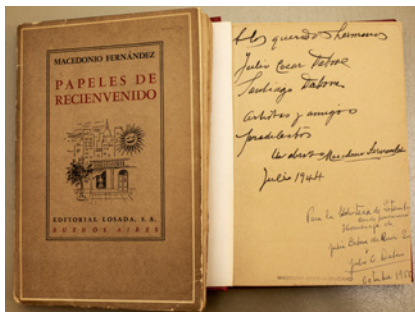 MACEDONIO FERNÁNDEZ
PAPELES DE
RECIENVENIDO
EDITORIAL LOSADA, S.A.
BUENOS AIRES
A los queridos hermanos
Julio Cesar Dabove
Santiago Dabove
artistas y amigos
predilectos
Un abrazo Macedonio Fernández
Julio 1944
Para la Biblioteca de
Homenaje de
Julio C. Dabove